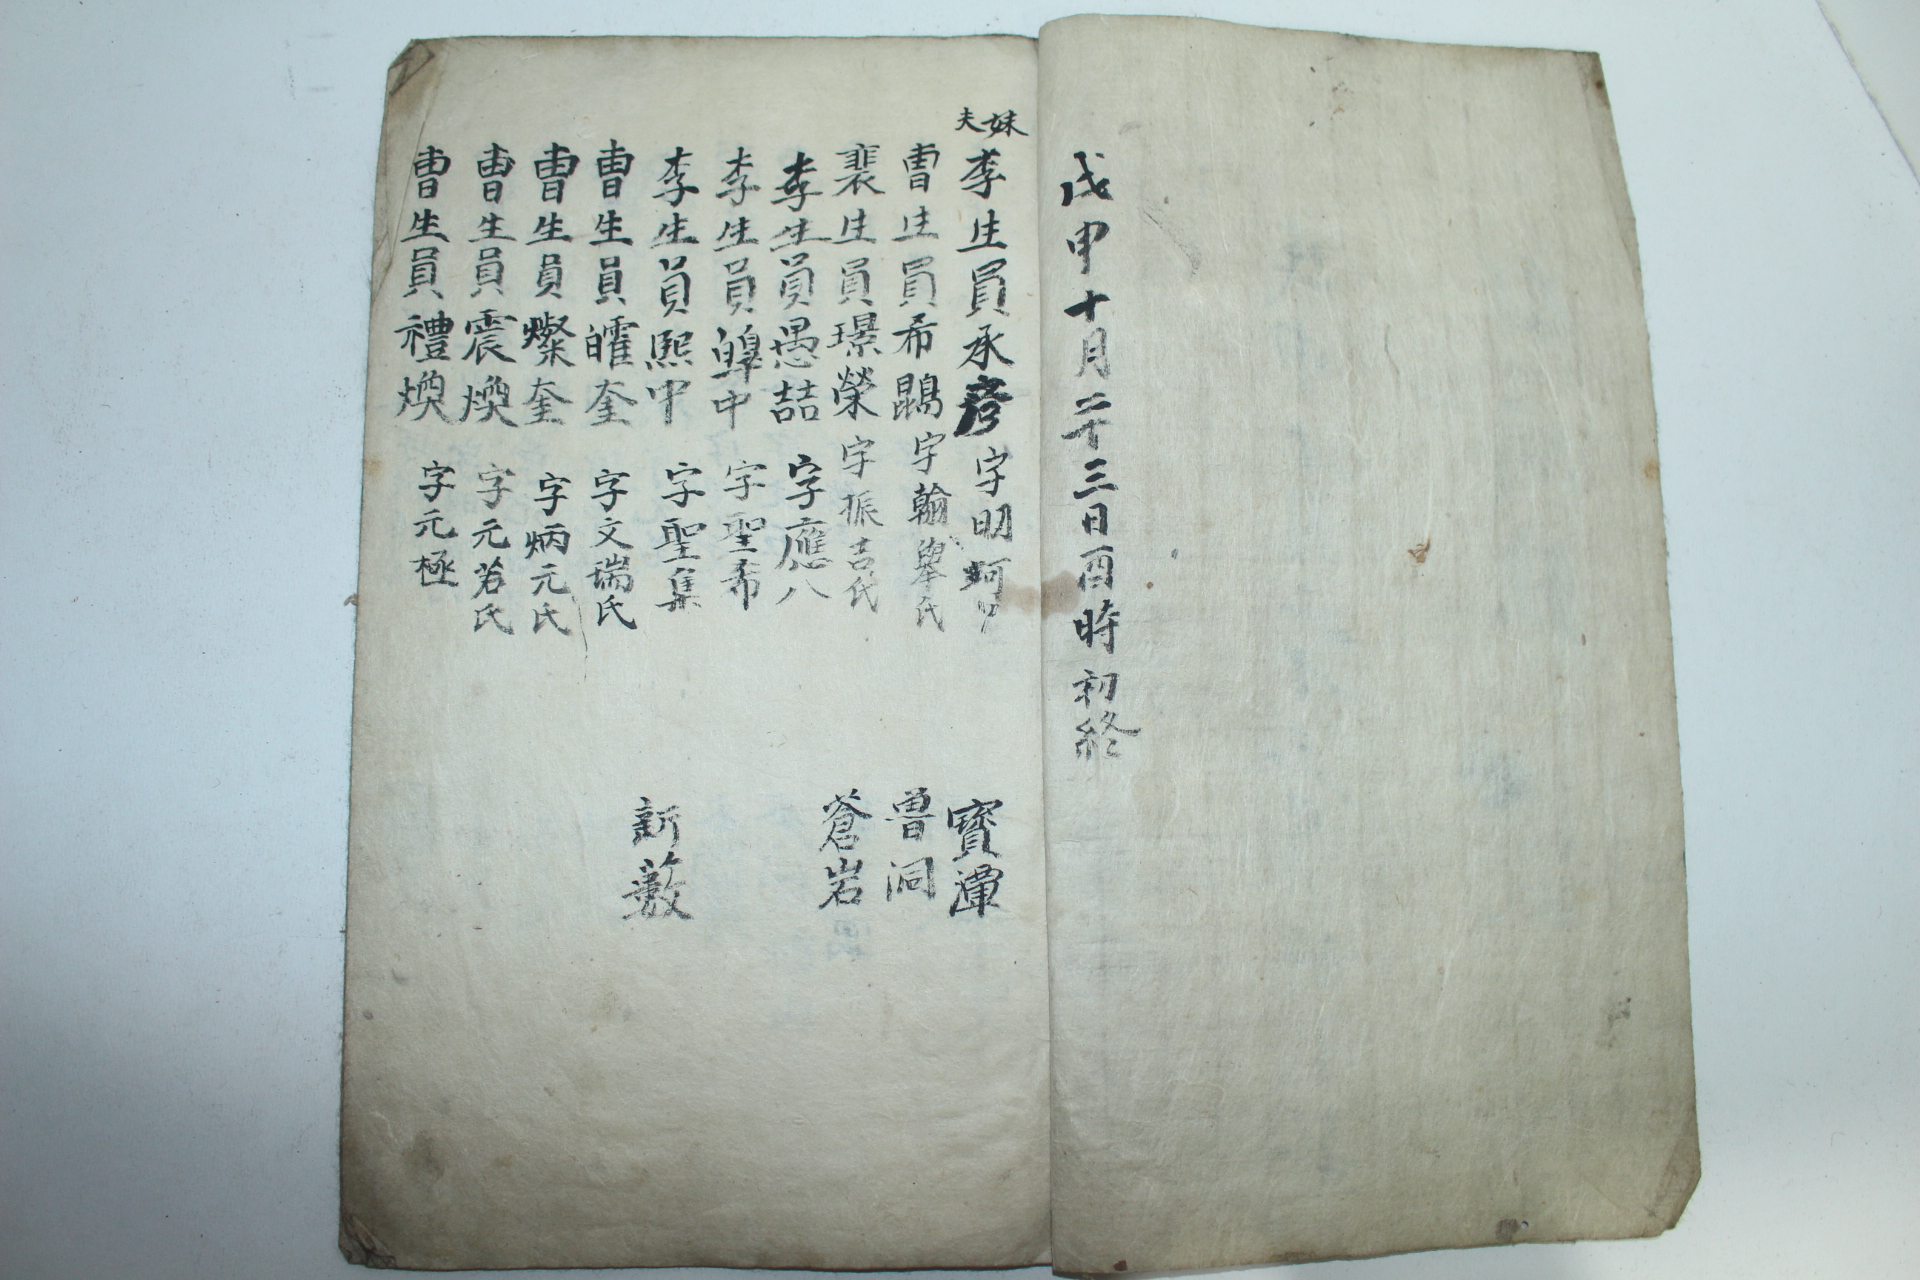 戊申十月二十三日酉時初終
妹夫
李生員承彦 字明
曺生員希鵾 字翰擧氏 曽洞
裴生員璟榮 字振吉氏 蒼岩
李生員愚喆 字應八
李生員皥中 字聖希
李生員熙中 字聖集 新藪
曺生員㿥奎 字文瑞氏
曺生員燦奎 字炳元氏
曺生員震煥 字元若氏
曺生員禮煥 字元極
寶潭